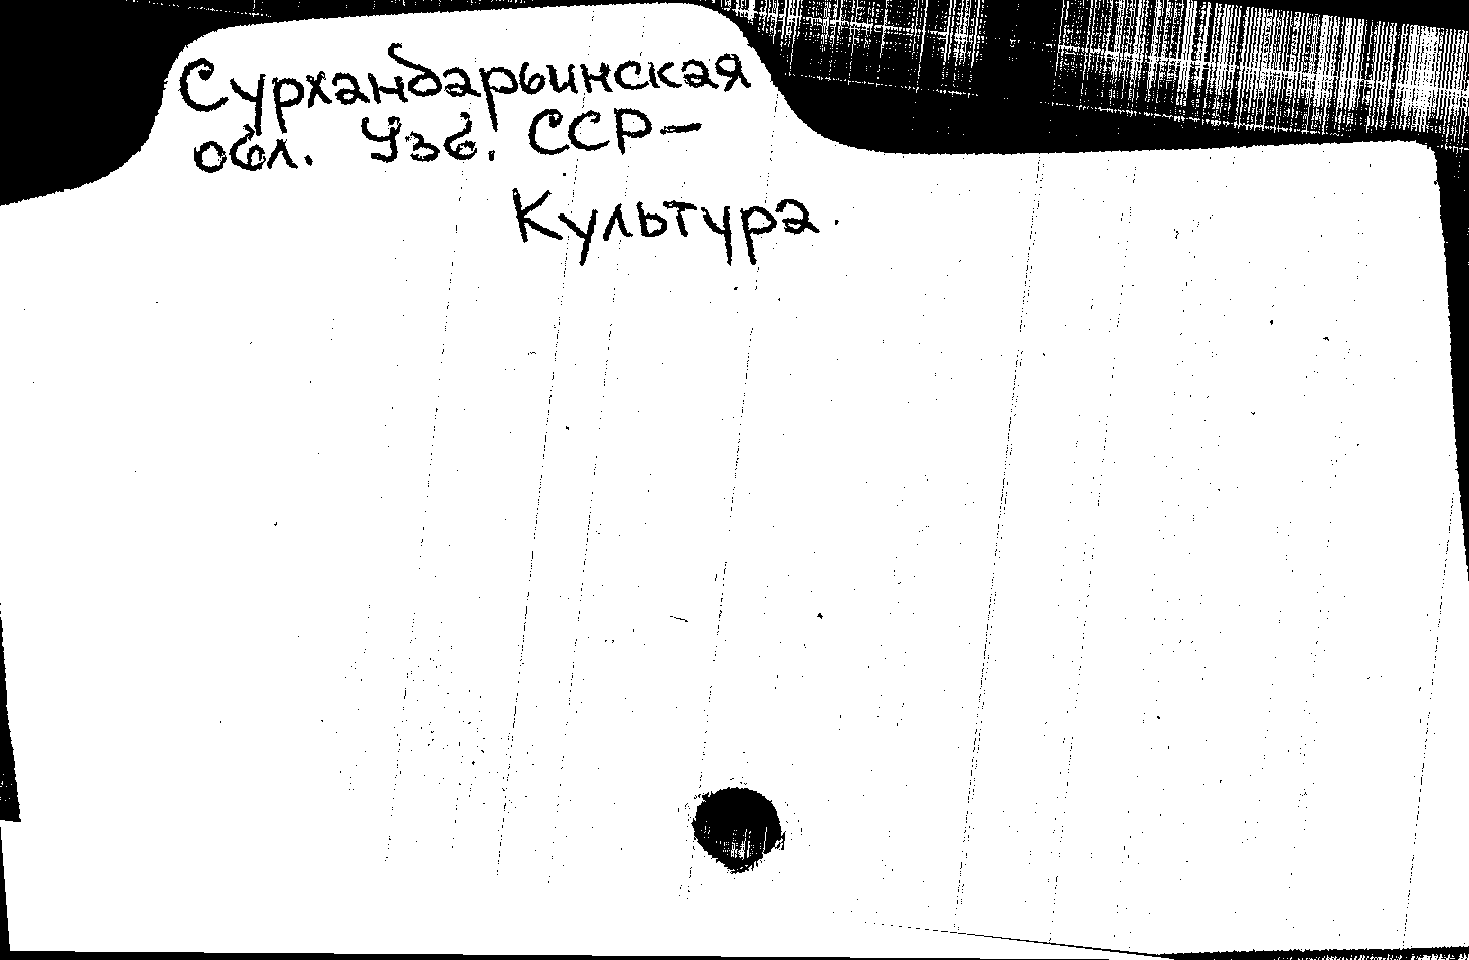 Сурхандарьинская
обл. Узб. ССР-
Культура.